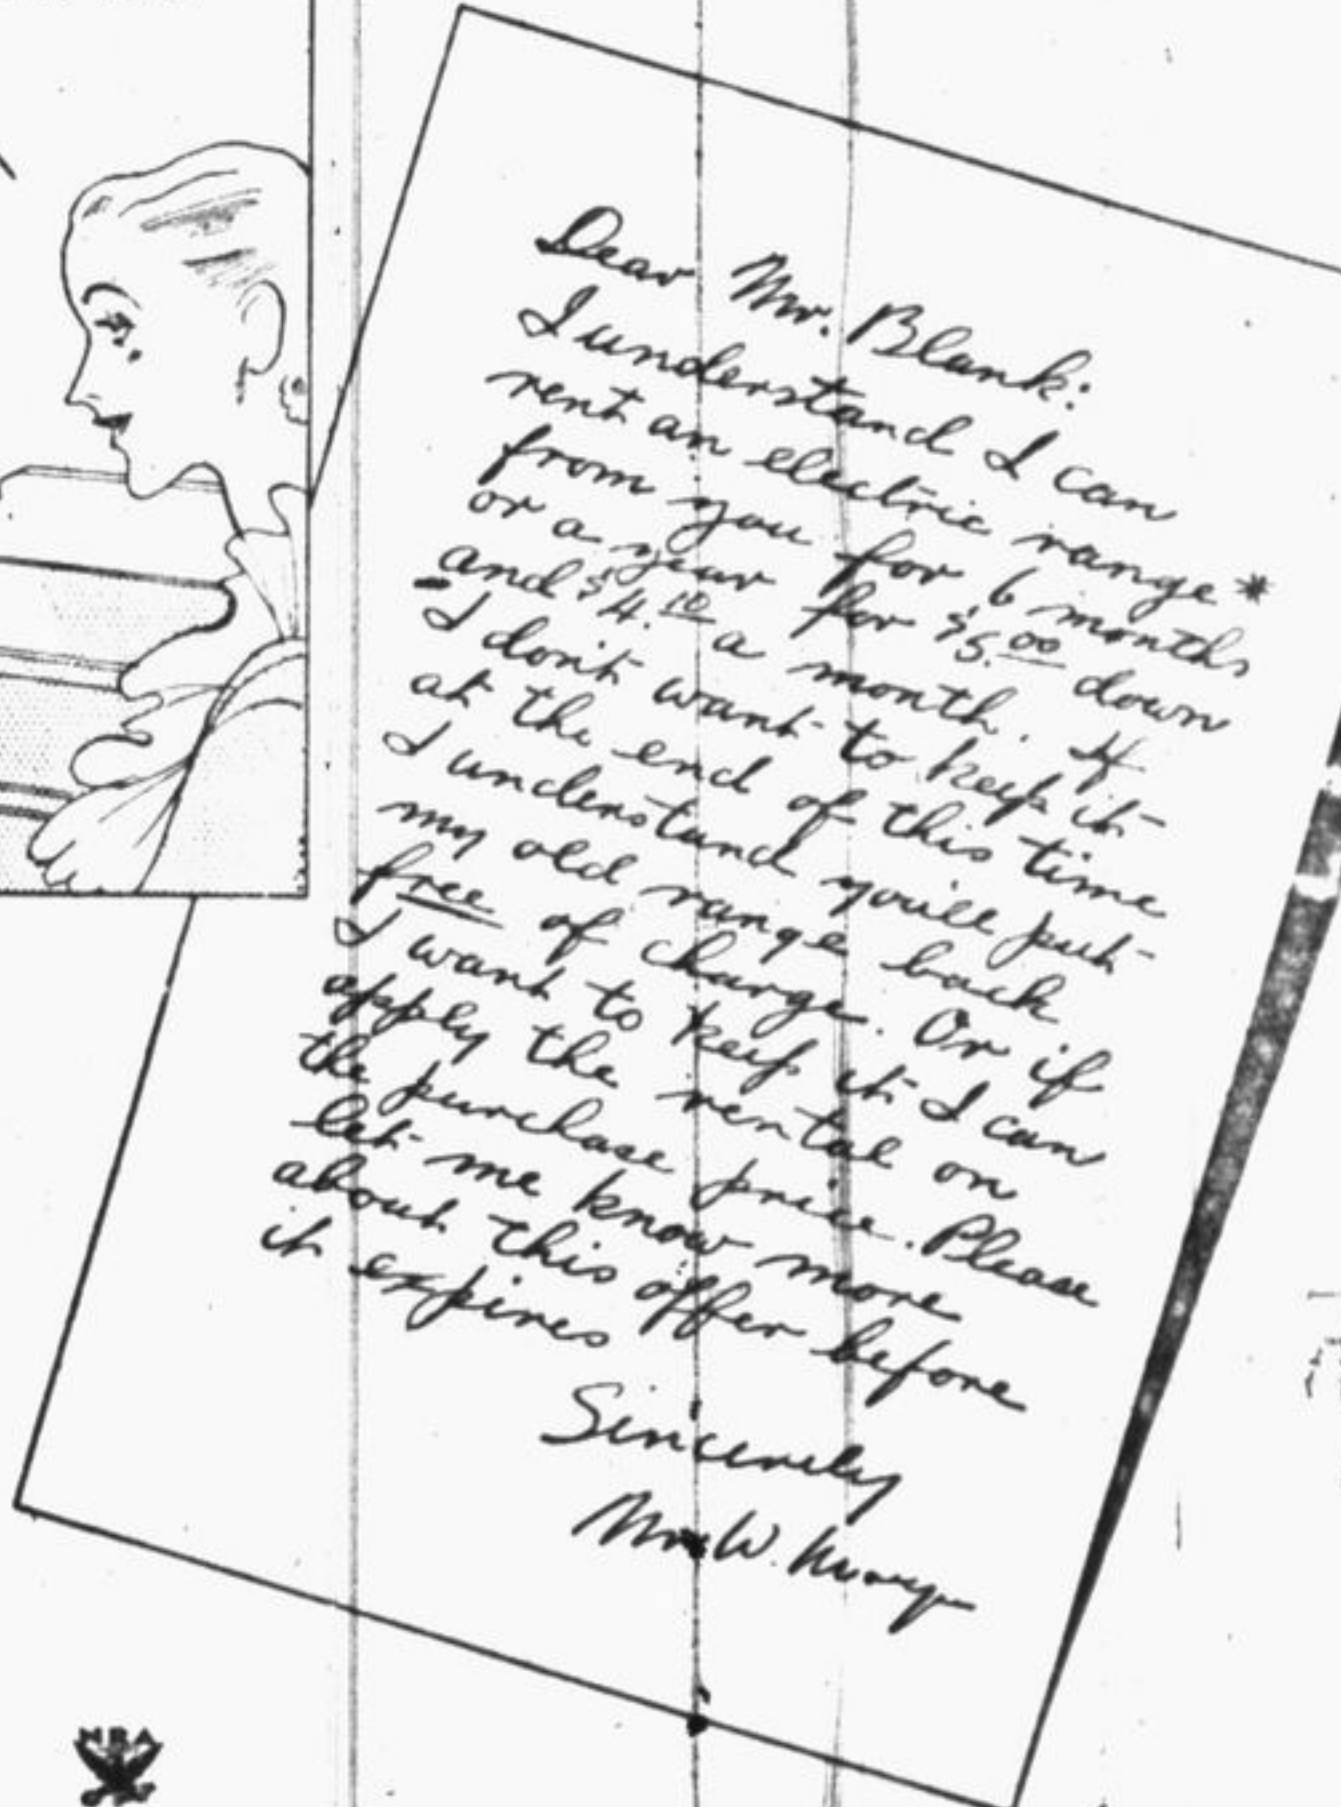 Dear Mr. Blank:
I understand I can
rent an electric range*
from you for 6 months
or a year for $5.00 down
and $4.10 a month. If
I don't want to keep it
at the end of this time
I understand you'll put
my old range back
free of charge. Or if
I want to keep it I can
apply the rental on
the purchase price. Please
let me know more
about this offer before
it expires
Sincerely
W.
NRA